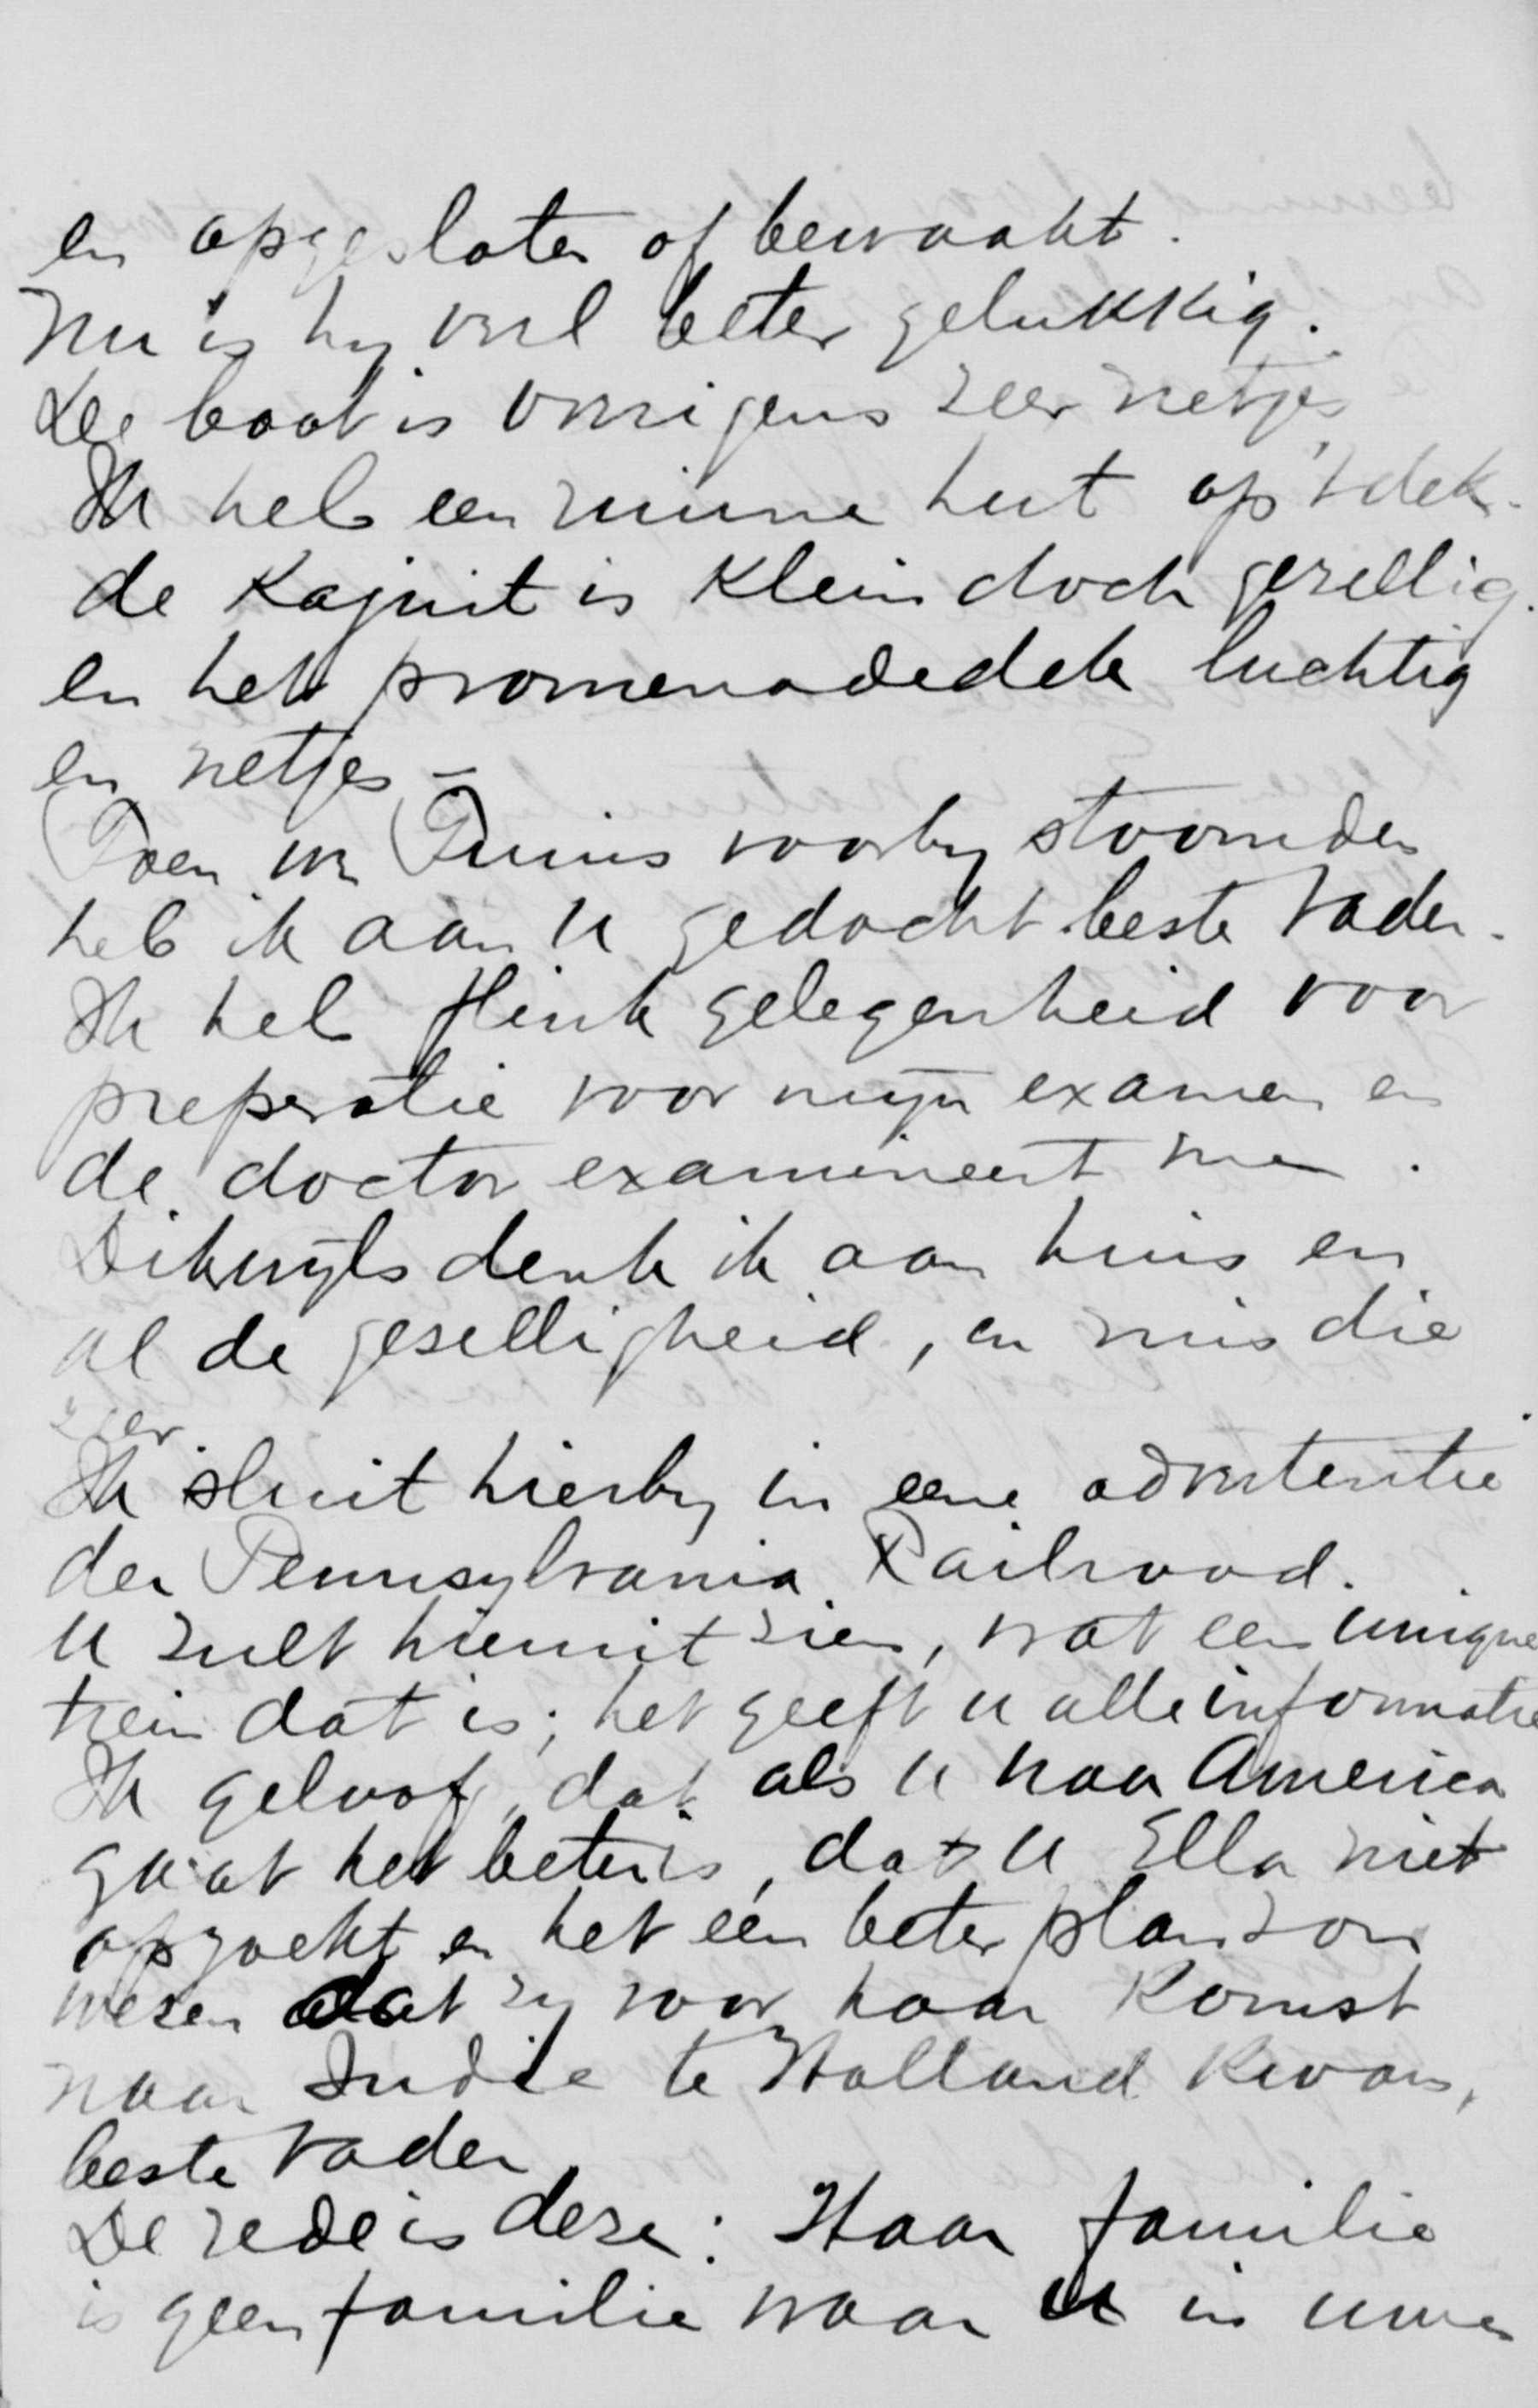 en opgesloten of bewaakt.
Nu is hy veel beter gelukkig.
De boot is overigens zeer netjes
Ik heb een ruime hut op 't dek.
de Kajuit is Klein doch gezellig.
en het promenadedek luchtig
en netjes –
Toen we Tunis voorby stoomden
heb ik aan U gedacht beste Vader.
Ik heb flink gelegenheid voor
preperatie voor mijn examen en
de doctor examineert me.
Dikwijls denk ik aan huis en
al de geselligheid, en mis die
zeer
Ik sluit hierby in eene advertentie
der Pennsylvania Railroad.
U zult hieruit zien, wat een unique
trein dat is; het geeft u alle informatie
Ik geloof, dat als U naar America
gaat het beter is, dat U Ella niet
opzoekt en het een beter plan zou
wezen dat zy voor haar Komst
naar Indië te Holland Kwam,
beste Vader
De rede is deze: Haar familie
is geen familie waar U in uwe